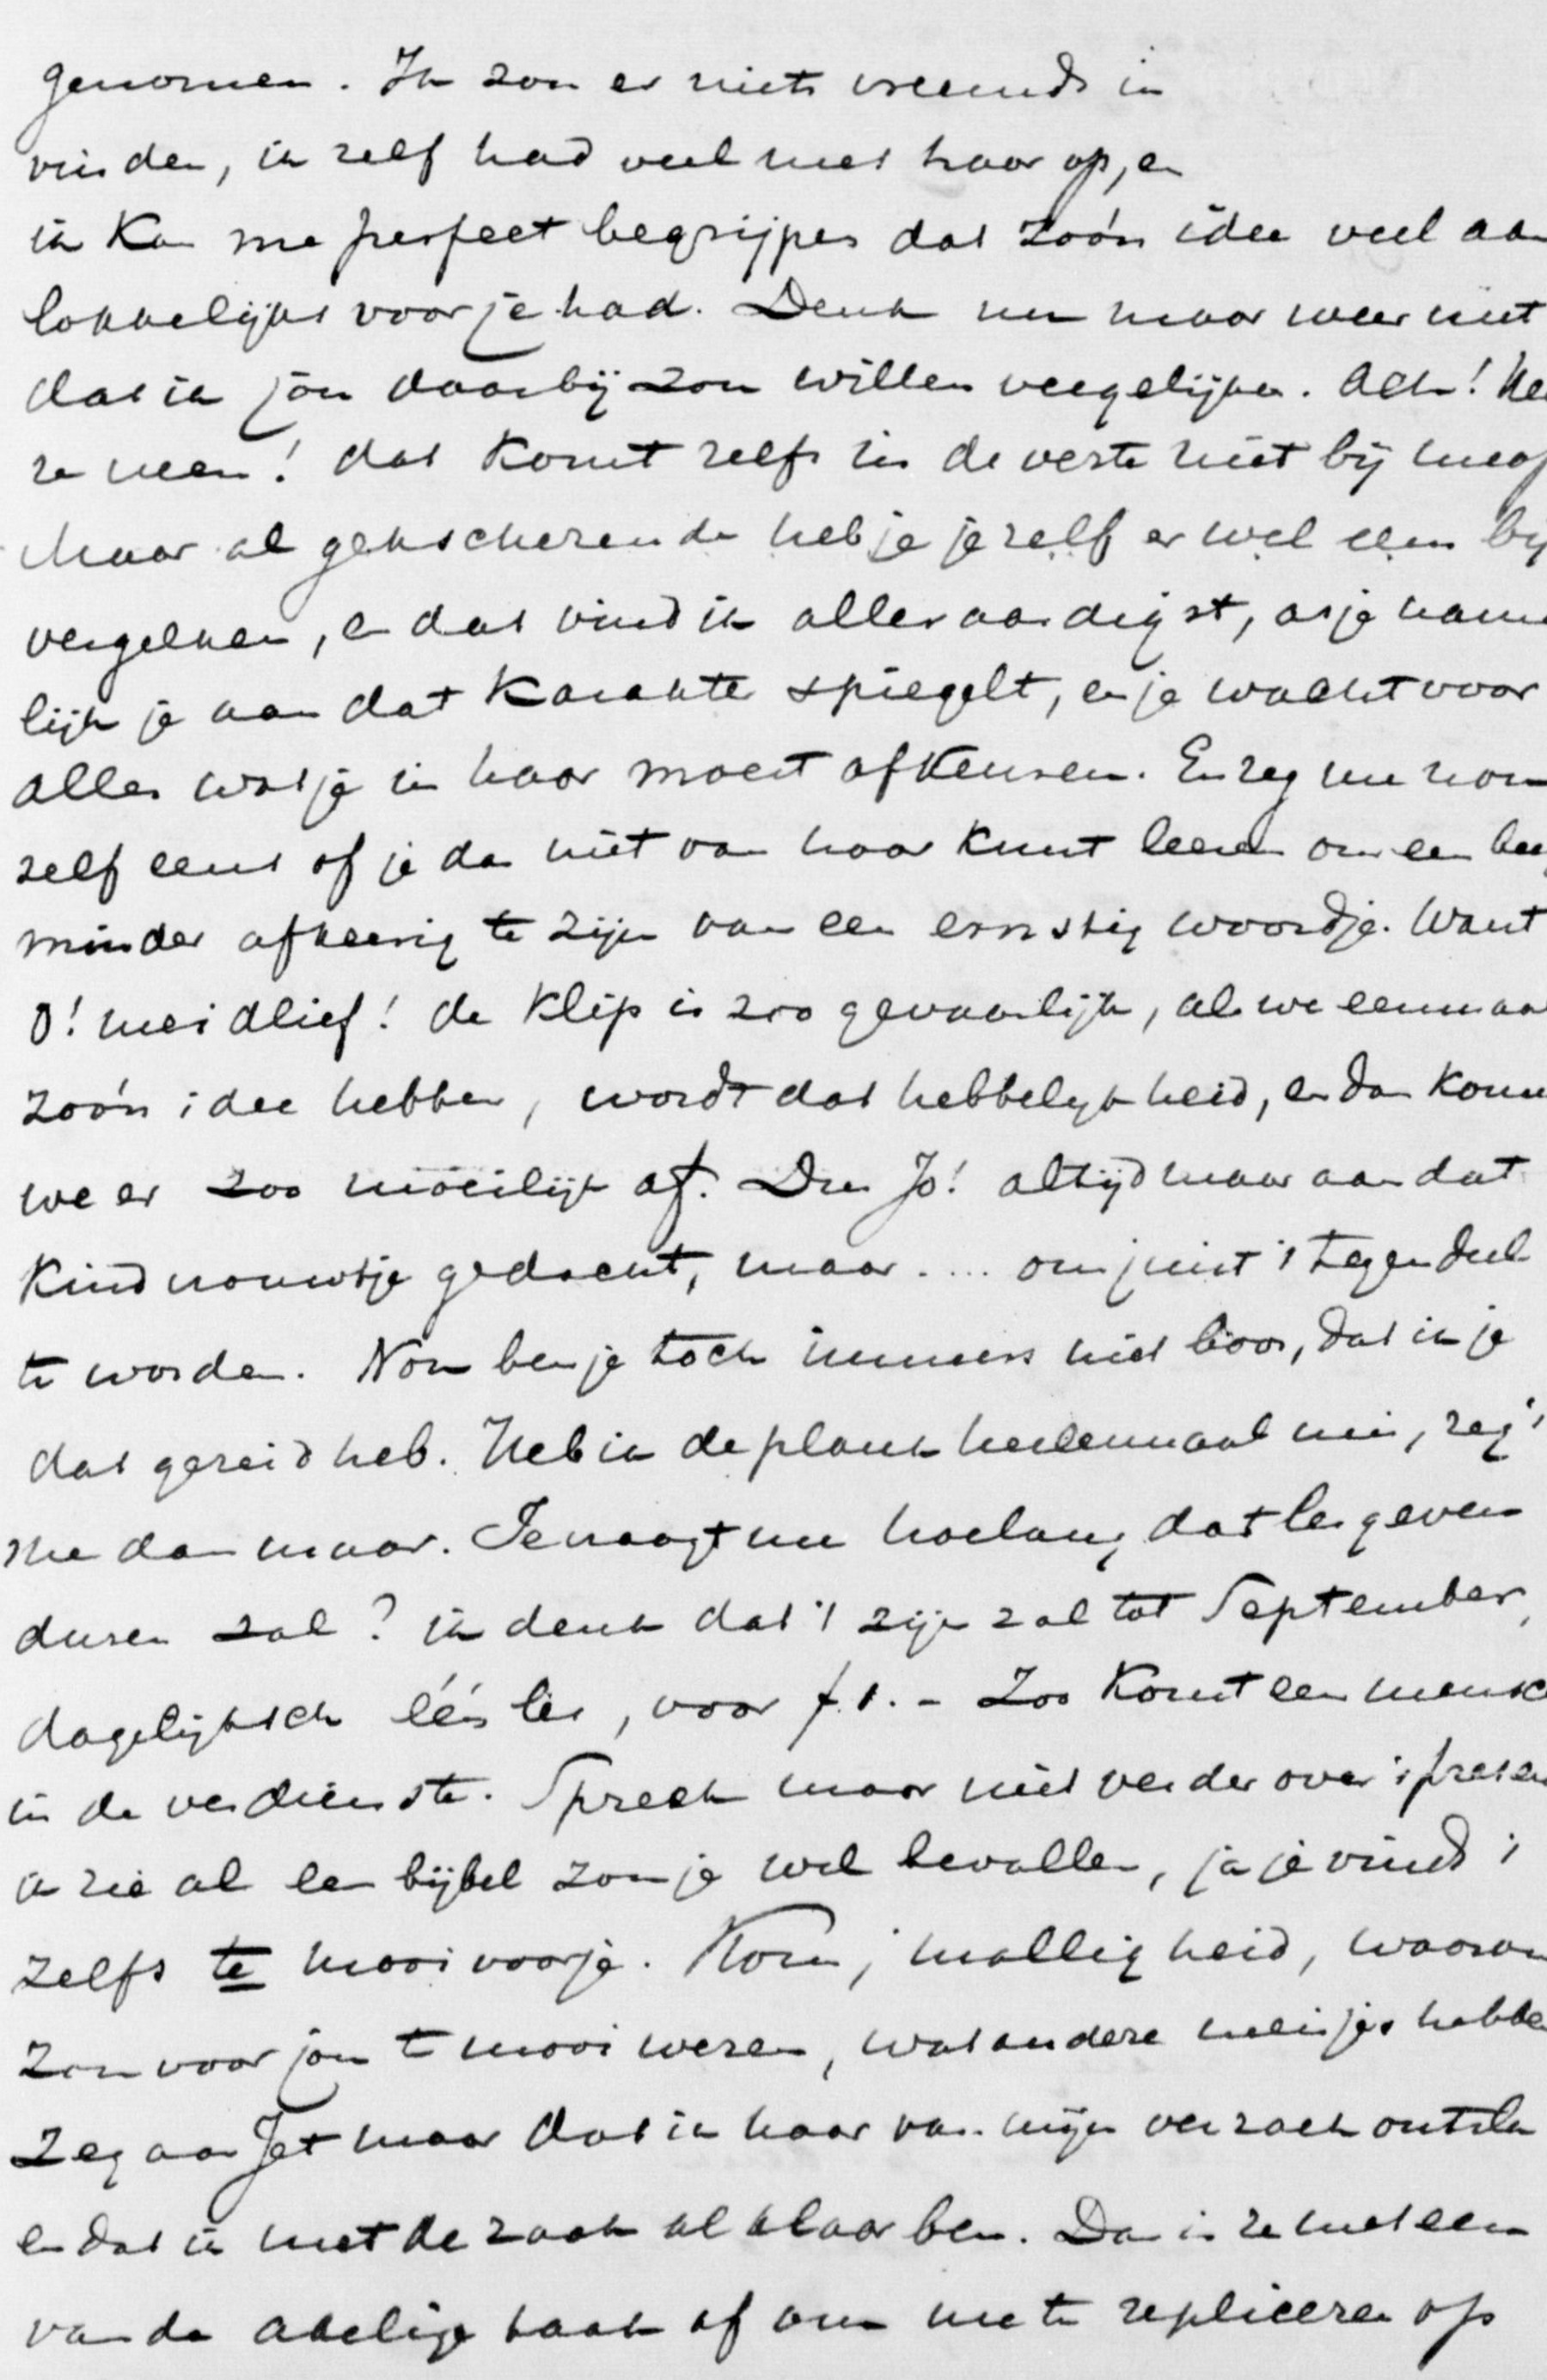 genomen. Ik zou er niets vreemds in
vinden, ik zelf had veel met haar op, en
ik kan me perfect begrijpen dat zoo'n idee veel aan
lokkelijks voor je had. Denk nu maar weer niet
dat ik jou daarbij zou willen vergelijken. Ach! Hee
ze neen! dat komt zelfs in de verste niet bij me op
Maar al gekscherende heb je jezelf er wel eens bij
vergeleken, en dat vind ik alleraardigst, as je name
lijk je aan dat karakter spiegelt, en je wacht voor
alles wat je in haar moest afkeuren. En zeg me nou
zelf eens of je dan niet van haar kunt leeren om een beet
minder afkeerig te zijn van een ernstig woordje. Want
O! meidlief! de klip is zoo gevaarlijk, als we eenmaal
zoo'n idee hebben, wordt dat hebbelijkheid, en dan komen
we er zoo moeilijk af. Dus Jo! altijd maar aan dat
kindvrouwtje gedacht, maar.... om juist 't tegendeel
te worden. Nou ben je toch immers niet boos, dat ik je
dat gezeid heb. Heb ik de plank heelemaal mis, zeg 't
me dan maar. Je vraagt me hoelang dat lesgeven
duren zal? ik denk dat 't zijn zal tot September,
dagelijksch één les, voor f 1.- Zoo komt een mensch
in de verdienste. Spreek maar niet verder over 't presen
ik zie al een bijbel zou je wel bevallen, ja je vindt 't
zelfs te mooi voor je. Kom, malligheid, waarom
zou voor jou te mooi wezen, wat andere meisjes hebben
Zeg aan Jet maar dat ik haar van mijn verzoek ontsla
en dat ik met de zaak al klaar ben. Dan is ze meteen
van de akelige taak af om me te repliceren op